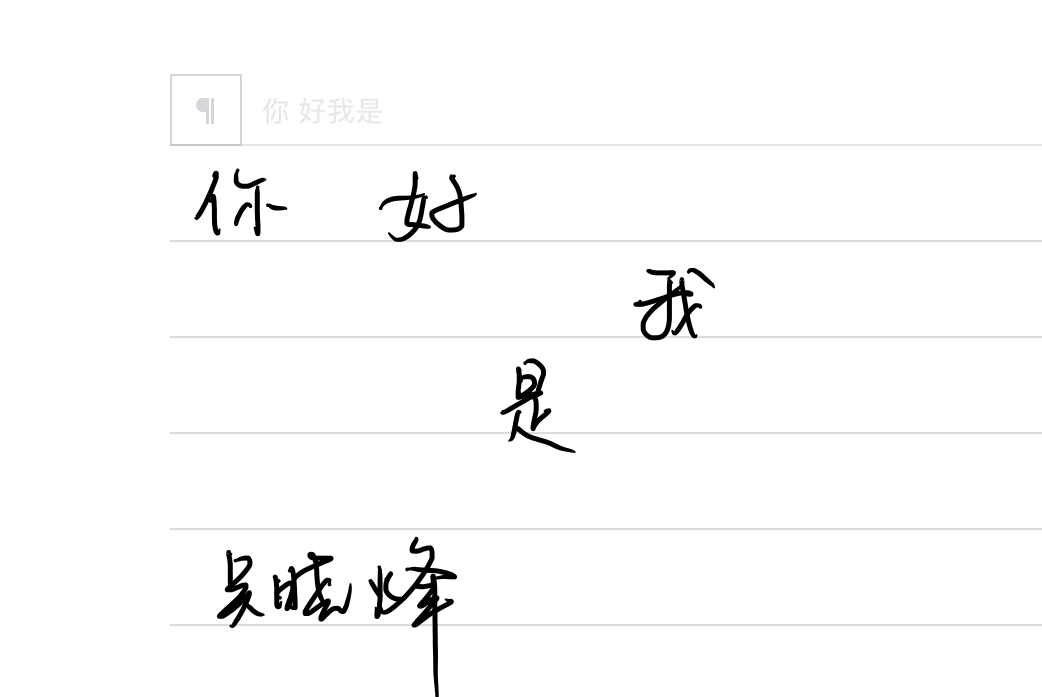 ¶ 你 好我是
你 好
我
是
吴晓烽